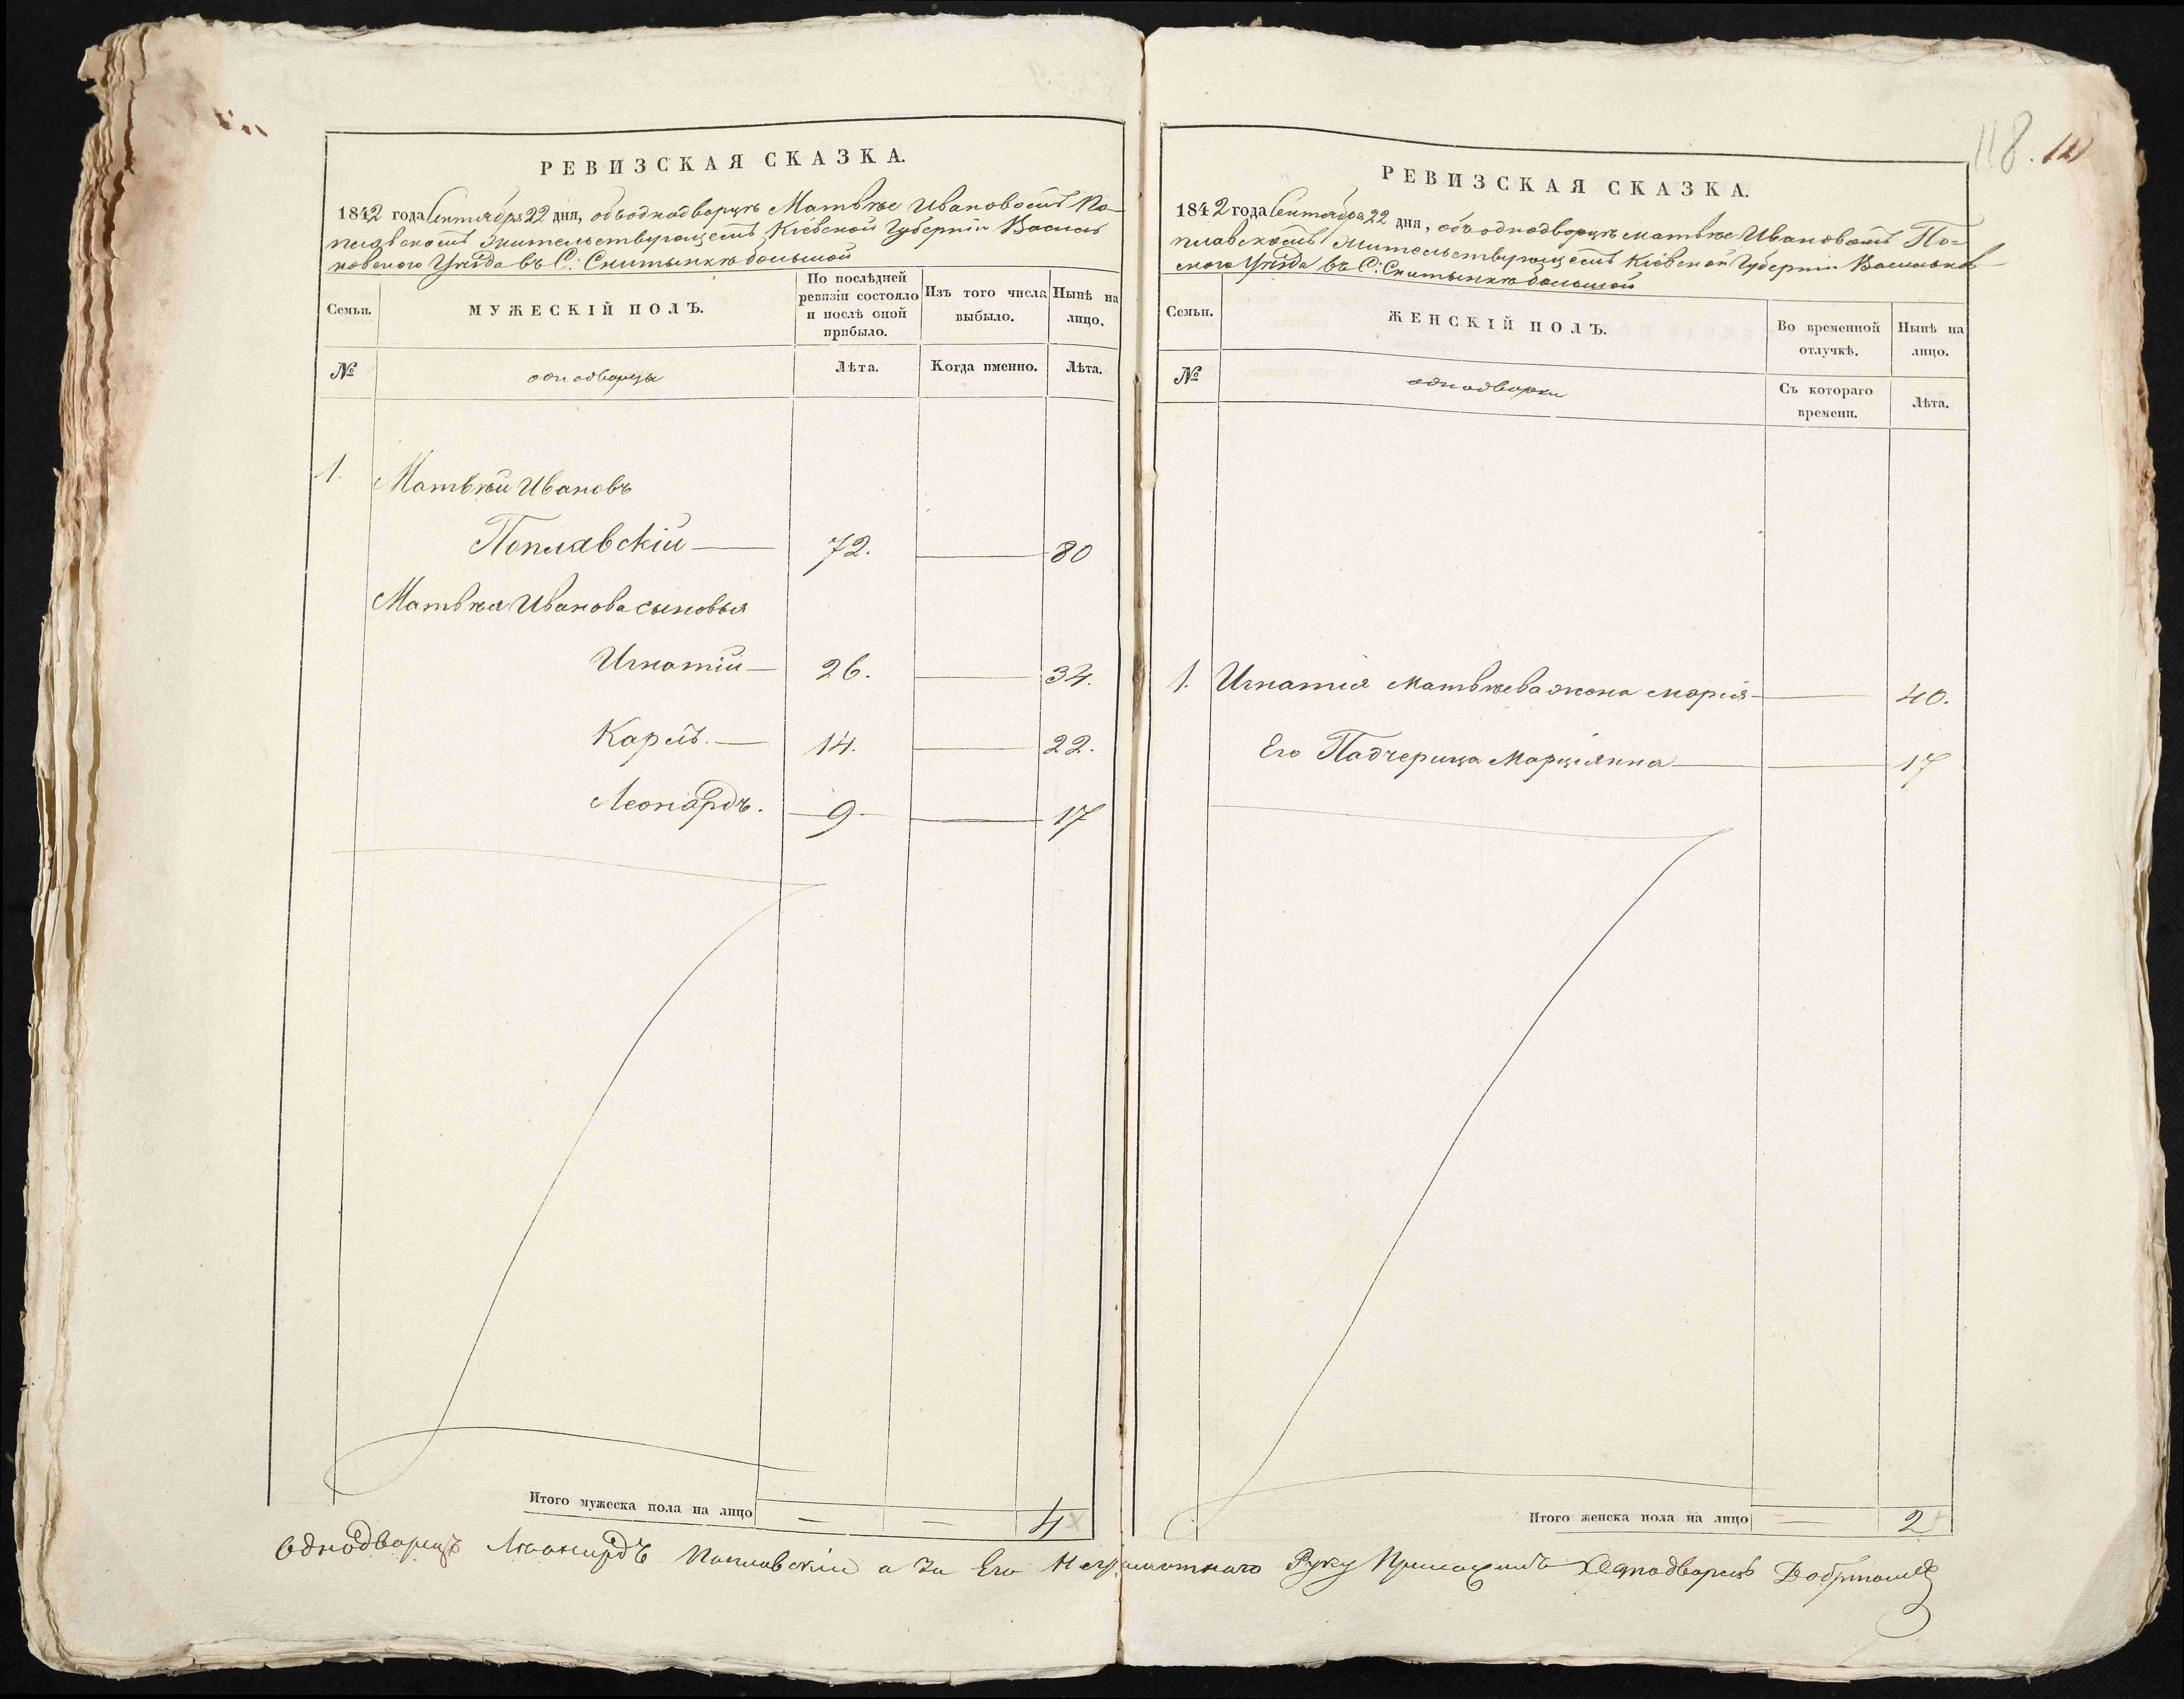 РЕВИЗСКАЯ СКАЗКА.
1842 года Сентября 22 дня, объ однодворцѣ Матвѣе Ивановомъ По-
плавскомъ жительствующемъ Кіевской Губерніи Василь
ковского Уѣзда въ С: Снитынкѣ большой
Семьи.
МУЖЕСКІЙ ПОЛЪ.
По послѣдней ревизіи состояло и послѣ оной прибыло.
Изъ того числа выбыло.
Нынѣ на лицо.
№
однодворцы
Лѣта.
Когда именно.
Лѣта.
1. Матвѣй Ивановъ
Поплавскій — 72. — 80
Матвѣя Иванова сыновья
Игнатій — 26. — 34.
Карлъ. — 14. — 22.
Леонардъ. — 9 — 17
Итого мужеска пола на лицо — — 4
118.
РЕВИЗСКАЯ СКАЗКА.
1842 года Сентября 22 дня, объ однодворцѣ Матвѣе Ивановомъ По-
плавскомъ жительствующемъ Кіевской Губерніи Васильков
ского Уѣзда въ С: Снитынкѣ большой
Семьи.
ЖЕНСКІЙ ПОЛЪ.
Во временной отлучкѣ.
Нынѣ на лицо.
№
однодворки
Съ котораго времени.
Лѣта.
1. Игнатія Матвѣева жона Марія — 40.
Его Падчерица Марціянна — 17
Итого женска пола на лицо — 2
Однодворецъ Леонардъ Поплавскій а За Его Неграмотнаго Руку Приложилъ Однодворецъ